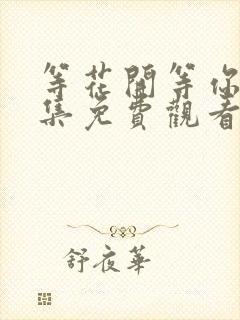 等花開等你
集免費觀看
舒夜華